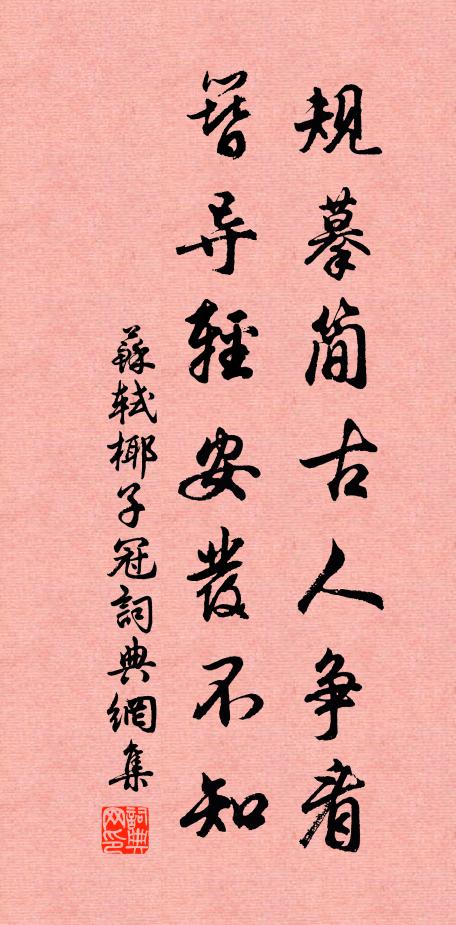 規摹簡古人爭看
簪导輕安髮不知
蘇軾椰子冠詞典網集
詞典网印